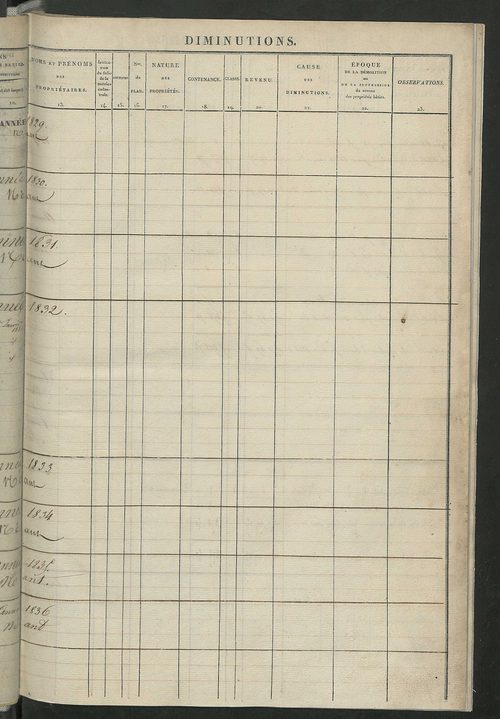 DIMINUTIONS.
NOMS ET PRÉNOMS
DES
PROPRIÉTAIRES.
13.
14.
15.
Nos.
du
PLAN.
16.
NATURE
DES
PROPRIÉTÉS.
17.
CONTENANCE.
18.
CLASSE.
19.
REVENU.
20.
CAUSE
DES
DIMINUTIONS.
21.
ÉPOQUE
DE LA DÉMOLITION
OU
DE LA SUPPRESSION
du revenu
des propriétés bâties.
22.
OBSERVATIONS.
23.
ANNÉE 1829.
Année 1830.
Néant
Année 1831.
Néant
Année 1832.
Année 1833
Néant
Année 1834
Néant
Année 1835.
Néant.
Année 1836
Néant